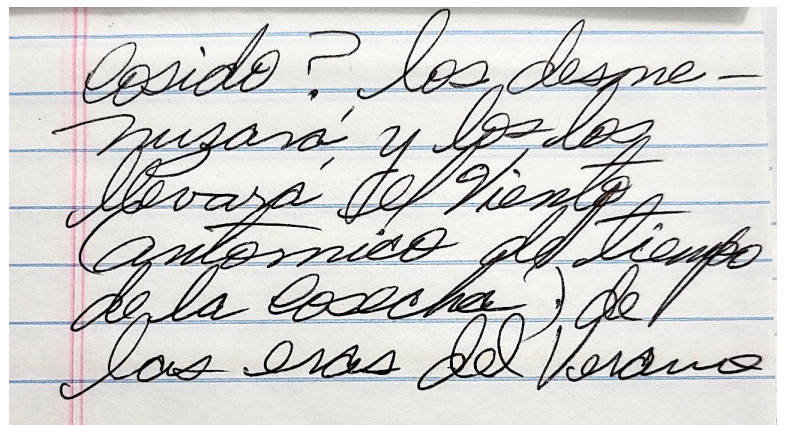 cosido? los desme-
nuzará, y los los
llevará, el Viento
(antomico del tiempo
de la cosecha,) de
las eras del Verano